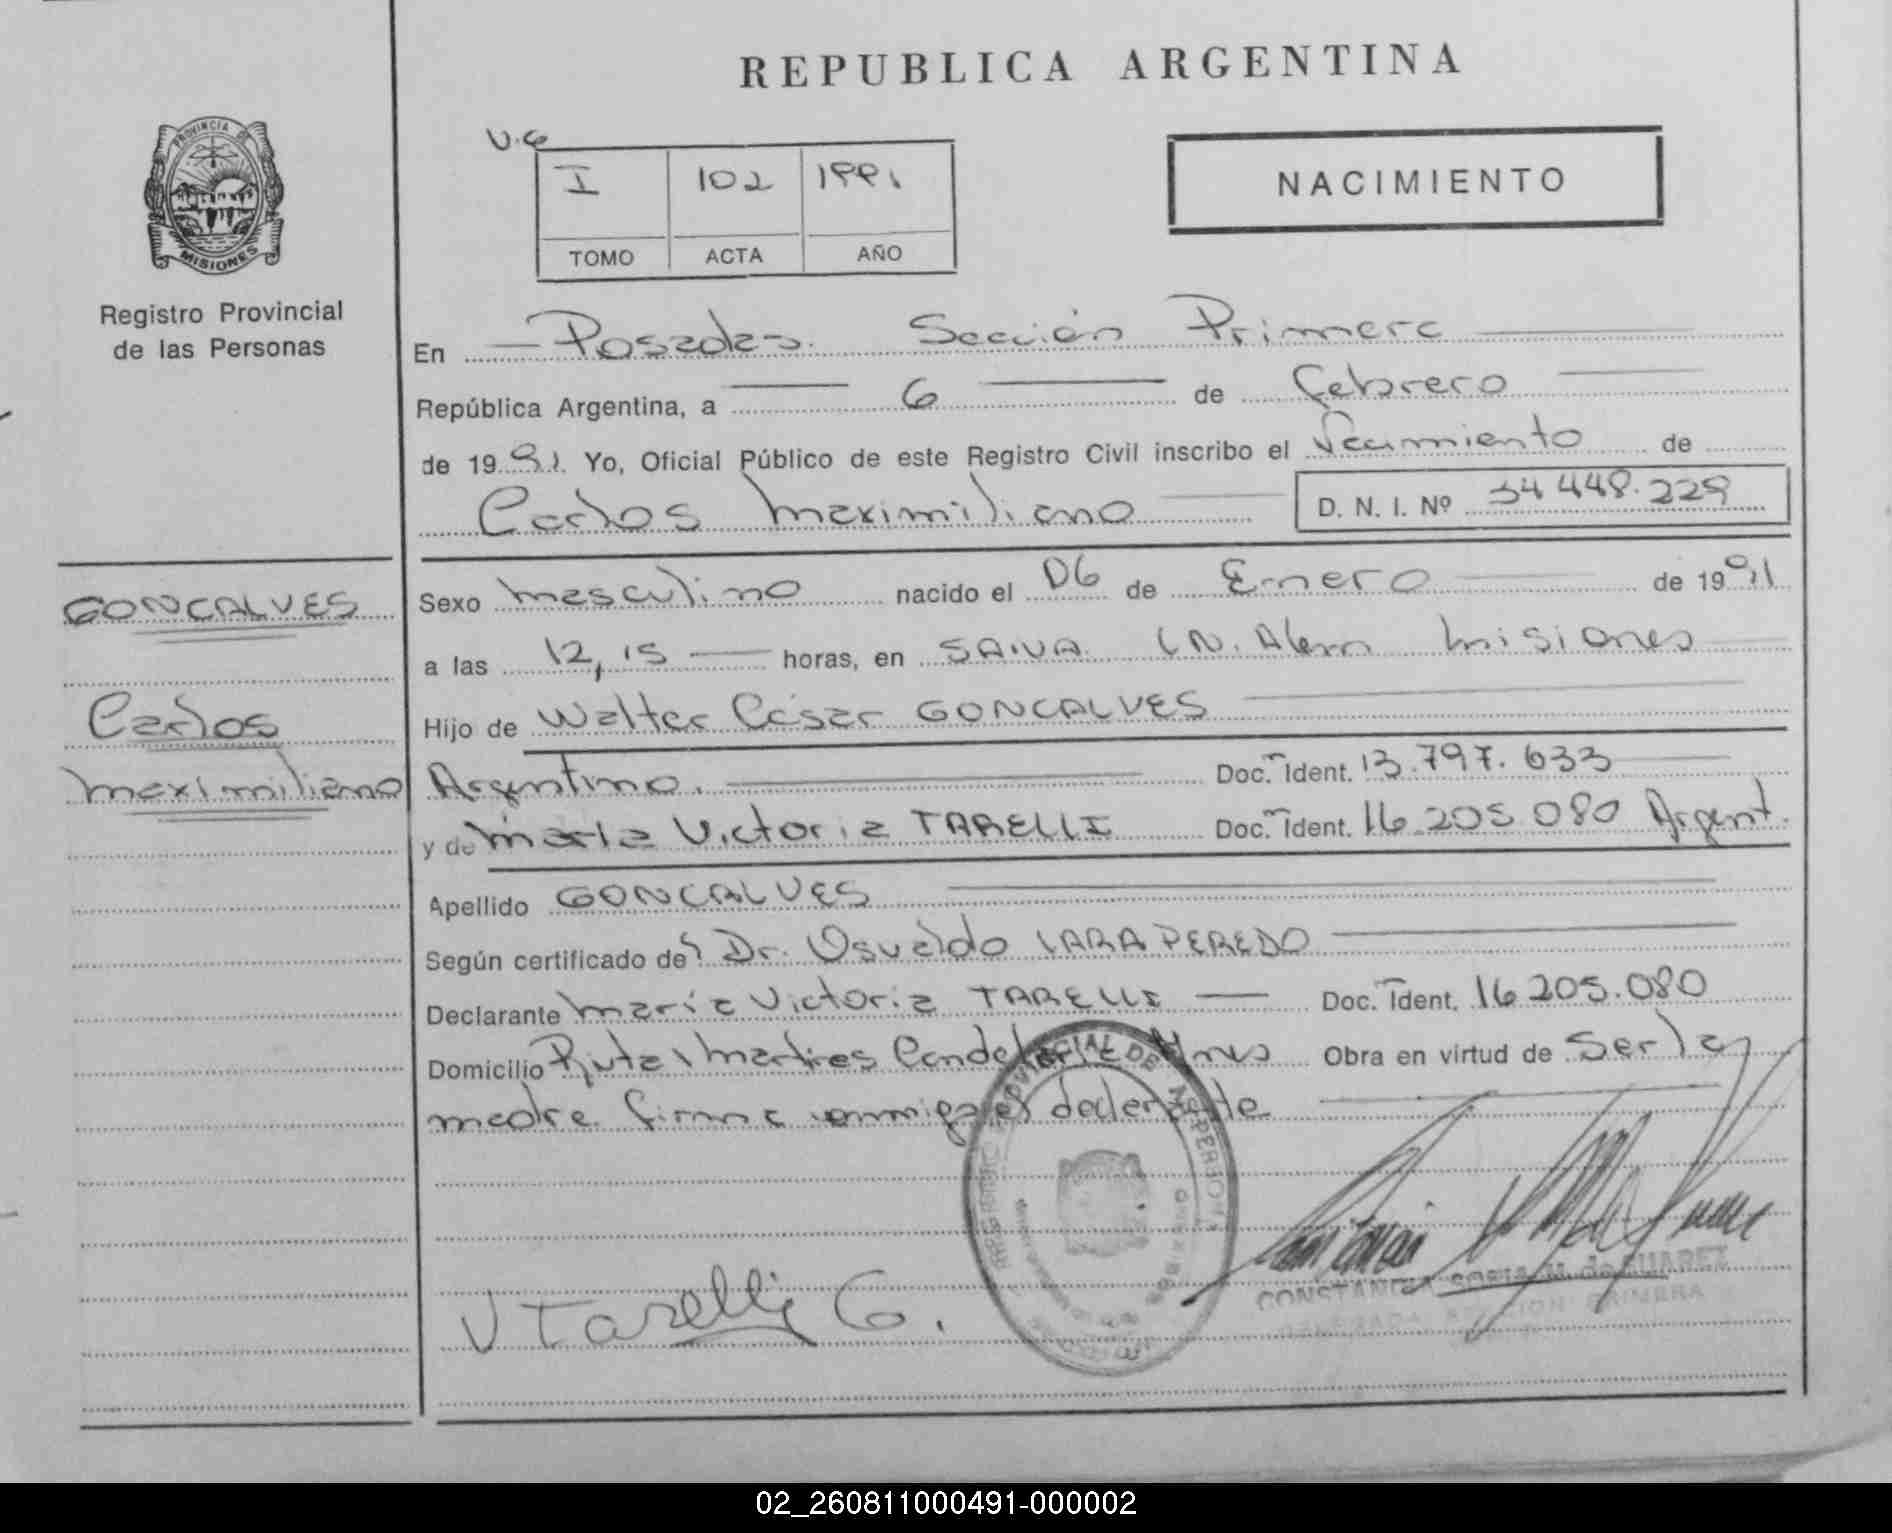 REPUBLICA ARGENTINA
PROVINCIA DE
MISIONES
Registro Provincial
de las Personas
V.G
I 102 1991
TOMO ACTA AÑO
NACIMIENTO
En Posadas. Sección Primera
República Argentina, a 6 de febrero
de 1991. Yo, Oficial Público de este Registro Civil inscribo el Nacimiento de
Carlos Maximiliano D. N. I. Nº 34 448.229
GONCALVES
Carlos
Maximiliano
Sexo masculino nacido el 06 de Enero de 1991
a las 12,15 horas, en L.N. Alem Misiones
Hijo de Walter César GONCALVES
Argentino. Doc. Ident. 13.797.633
y de María Victoria TARELLI Doc. Ident. 16.205.080 Argent.
Apellido GONCALVES
Según certificado del Dr. Osvaldo LARA PEREDO
Declarante María Victoria TARELLI Doc. Ident. 16.205.080
Domicilio Ruta 1 Martires Candelaria Mnes Obra en virtud de Ser la
madre. firma conmigo el declarante
V Tarelli G.
CONSTANCIA SOFIA M. de SUAREZ
DELEGADA SECCION PRIMERA
02_260811000491-000002